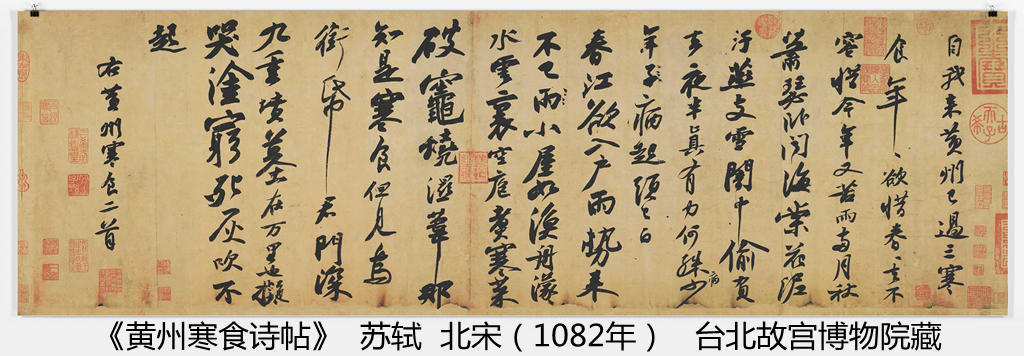 自我來黃州已過三寒
食年〻欲惜春〻去不
容惜今年又苦雨兩月秋
蕭瑟臥聞海棠花泥
汙燕支雪闇中偷負
去夜半真有力何殊病少
年子病起頭已白
春江欲入戶雨勢來
不已雨小屋如漁舟濛〻
水雲裏空庖煮寒菜
破竈燒濕葦那
知是寒食但見烏
銜帋君門深
九重墳墓在万里也擬
哭塗窮死灰吹不
起
右黃州寒食二首
《黄州寒食诗帖》 苏轼 北宋（1082年） 台北故宫博物院藏